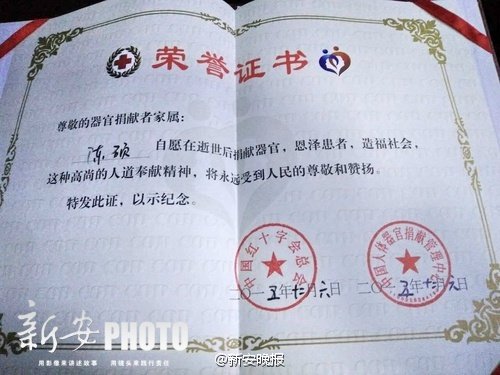 荣誉证书
尊敬的器官捐献者家属：
陈硕 自愿在逝世后捐献器官，恩泽患者，造福社会，
这种高尚的人道奉献精神，将永远受到人民的尊敬和赞扬。
特发此证，以示纪念。
中国红十字会总会
中国人体器官捐献管理中心
二〇一五年十二月六日 二〇一五年十二月六日
新安PHOTO
用影像来讲述故事 用镜头来践行责任
@新安晚报